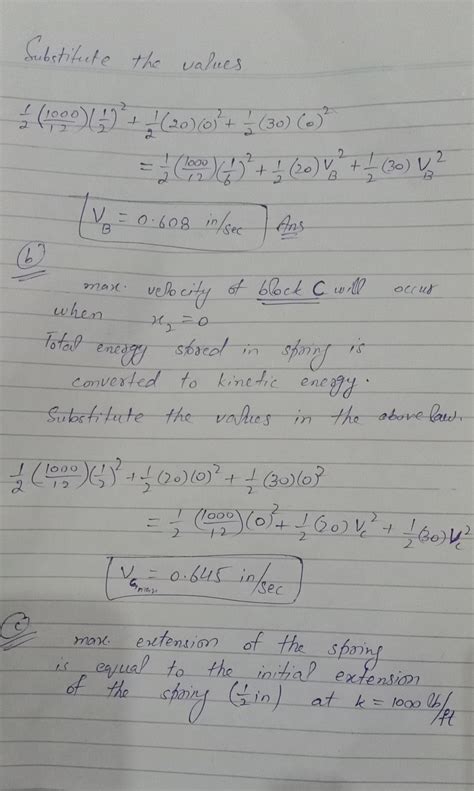 Substitute the values
1/2 (1000/12) (1/2)² + 1/2 (20)(0)² + 1/2 (30)(0)²
= 1/2 (1000/12) (1/6)² + 1/2 (20) V_B² + 1/2 (30) V_B²
V_B = 0.608 in/sec Ans
(b)
max. velocity of block C will occur
when x₂ = 0
Total energy stored in spring is
converted to kinetic energy.
Substitute the values in the above law.
1/2 (1000/12) (1/2)² + 1/2 (20)(0)² + 1/2 (30)(0)²
= 1/2 (1000/12) (0)² + 1/2 (20) V_C² + 1/2 (30) V_C²
V_Cmax. = 0.645 in/sec
(c)
max. extension of the spring
is equal to the initial extension
of the spring (1/2 in) at k = 1000 lb/ft